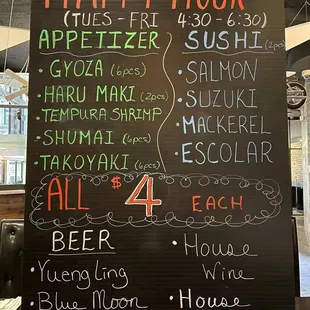 HAPPY HOUR
(TUES - FRI 4:30 - 6:30)
APPETIZER
· GYOZA (6pcs)
· HARU MAKI (2pcs)
· TEMPURA SHRIMP
· SHUMAI (6pcs)
· TAKOYAKI (4pcs)
SUSHI (2pcs
· SALMON
· SUZUKI
· MACKEREL
· ESCOLAR
ALL $4 EACH
BEER
· Yuengling
· Blue Moon
· House
Wine
· House